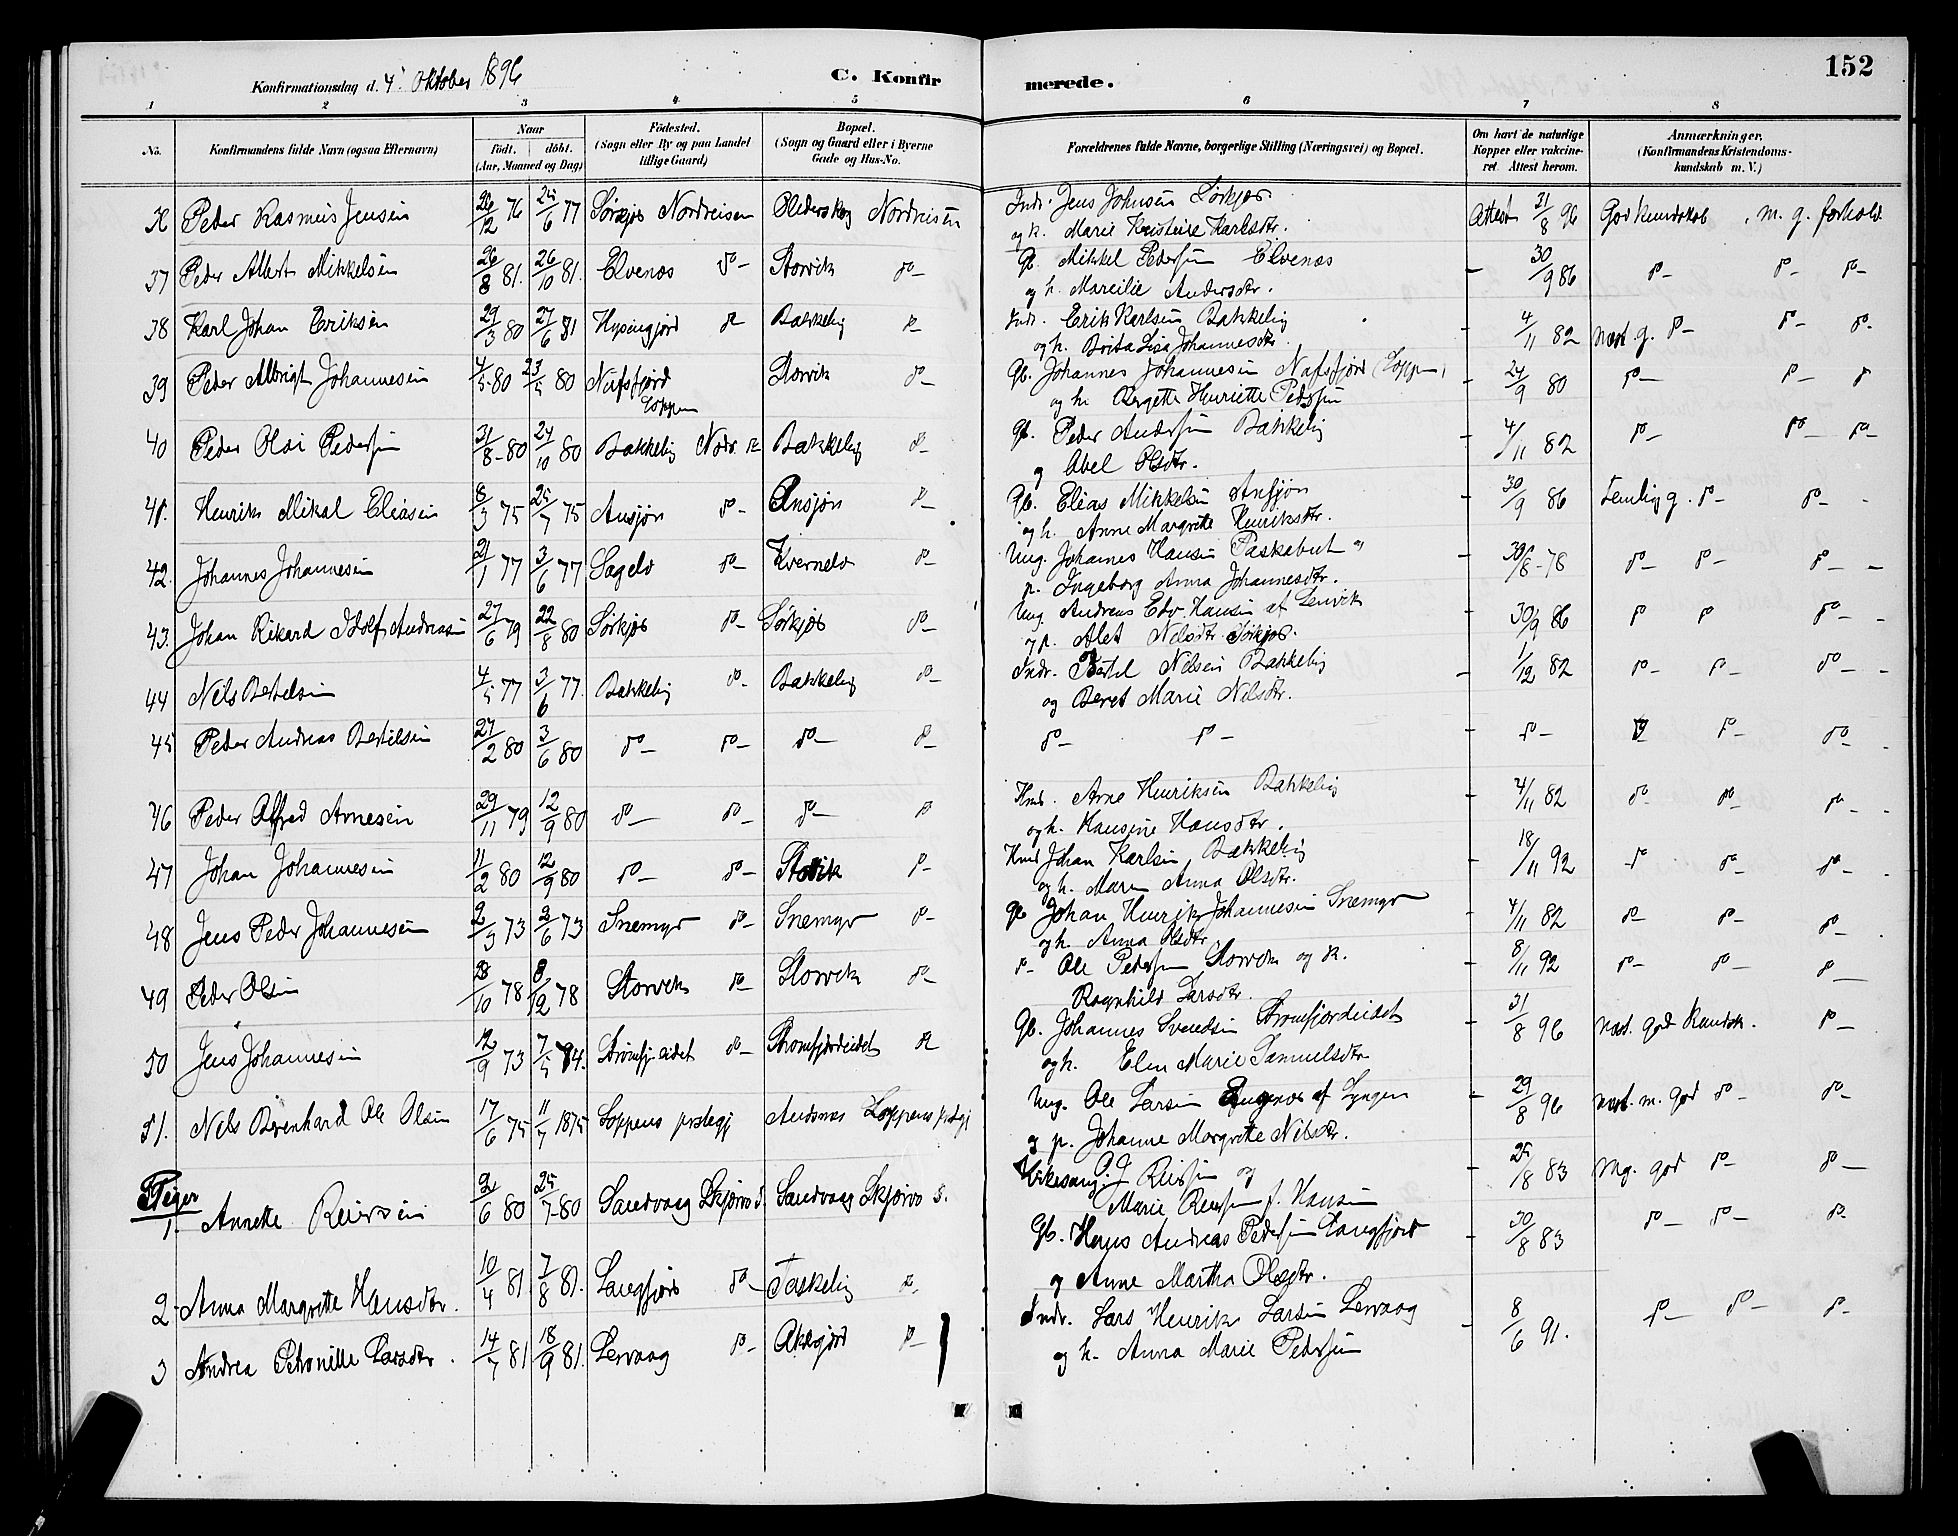 152
Konfirmationsdag d. 4' Oktober 1896
C. Konfirmerede.
1 2 3 4 5 6 7 8
No. Konfirmandens fulde Navn (ogsaa Efternavn) Naar født. døbt. (Aar, Maaned og Dag) Fødested. (Sogn eller By og paa Landet tillige Gaard) Bopæl. (Sogn og Gaard eller i Byerne Gade og Hus-No. Forældrenes fulde Navne, borgerlige Stilling (Næringsvei) og Bopæl. Om havt de naturlige Kopper eller vakcineret Attest herom. Anmærkninger. (Konfirmandens Kristendomskundskab m. V.)
Peder Rasmus Jensen 26/12 76 24/6 77 Sørkjos Nordreisen Olderskog Nordreisen Indr. Jens Johnsen Sørkjos. Attest 31/8 96 God kundskab, m. g. forhold
og k. Marie Kristine Karlsdtr.
37 Peder Albert Mikkelsen 26/8 81. 26/10 81. Elvenæs do- Storvik do- Gb. Mikkel Pedersen Elvenæs - 30/9 86 do- do- do-
og h. Mareilie Andersdtr.
38 Karl Johan Eriksen 29/3 80 27/6 81 do Bakkeby do- Indr. Erik Karlsen Bakkeby - 4/11 82 næst. g. do- do- do-
og h. Brita Lisa Johannesdtr.
39 Peder Albrigt Johannesen 4/5 80 23/5 80 Nufsfjord Loppen Storvik do- Gb. Johannes Johannesen Nufsfjord (Loppen) - 24/9 80 do- do- do
og h. Bergette Henriette Pedersen
40 Peder Olai Pedersen 31/8 80 24/10 80 Bakkeby Nodr. R Bakkeby do- Gb. Peder Andersen Bakkeby - 4/11 82 do- do- do-
og Abel Olsdtr.
41. Henrik Mikal Eliasen 8/3 75 25/7 75 Ansjøn do- Ansjøn do- Gb. Elias Mikkelsen Ansjøn - 30/9 86 Temlig g. do- do-
og h. Anne Margrethe Henriksdtr.
42. Johannes Johannesen 21/1 77 3/6 77 Sagelv do- Kvernelv do- Ung. Johannes Hansen - 30/8 78 do- do- do-
p. Ingeborg Anna Johannesdtr.
43. Johan Rikard Idolf Andreasen 27/6 79 22/8 80 Sørkjos do- Sørkjos do- Ung. Andreas Edv. Hansen af Lenvik - 30/9 86 do do do-
og p. Alet Nilsdtr Sørkjos.
44 Nels Bertelsen 4/5 77 3/6 77. Bakkeby do- Bakkeby do- Indr. Bertel Nilsen Bakkeby - 1/12 82 do- do- do-
og Beret Marie Nilsdtr.
45 Peder Andreas Bertelsen 27/2 80 3/6 80 do- do- do- do- do- do- do- do- do-
46 Peder Alfred Arnesen 29/11 79 12/9 80 do- do- do- do Arne Henriksen Bakkeby - 4/11 82 do- do- do-
og h. Hansine Hansdtr.
47 Johan Johannesen 11/2 80 12/9 80 do- do- Storvik do- Johan Karlsen Bakkeby - 18/11 92 do do- do-
og h. Maren Anna Olsdtr.
48 Jens Peder Johannesen 2/3 73 2/6 73 Snemyr do- Snemyr do- Gb Johan Henrik Johannesen Snemyr - 4/11 82 do- do- do-
og h. Anna Olsdtr.
49 Peder Olsen 28/10 78 8/12 78 Storvik do- Storvik do- do- Ole Pedersen Storvik og k. - 8/11 92 do- do- do-
Ragnhild Larsdtr.
50 Jens Johannesen 12/9 73 7/5 74. Strømfj. eidet do- Strømfjordeidet do Gb. Johannes Svendsen Strømfjordeidet - 31/8 96 næst. god kundsk. do-
og h. Elen Marie Samuelsdtr.
51. Nels Berenhard Ole Olsen 17/6 75 11/7 1875 Loppens prstegj Andsnæs Loppens prstgj Ung. Ole Larsen af Lyngen - 29/8 96 næst. m. god do- do-
og p. Johanne Margrethe Nilsdtr.
Piger
1. Annette Reiersen 2/6 80 25/7 80 Sandvaag Skjærvø s. Sandvaag Skjærvø s. Kirkesang. P. J. Reiersen og - 25/8 83 Mg. god do- do-
Marie Reiersen f. Hansen
2. Anna Margrethe Hansdtr. 10/4 81 7/8 81. Langfjord do- Taskeby do. Gb. Hans Andreas Pedersen Langfjord - 30/8 83 do- do- do-
og Anne Martha Olsdtr.
3 Andrea Petronille Larsdtr. 14/7 81 18/9 81. Lervaag do- Akegjord do- Indr. Lars Henrik Larsen Lervaag - 8/6 91. do- do- do-
og h. Anna Marie Pedersen